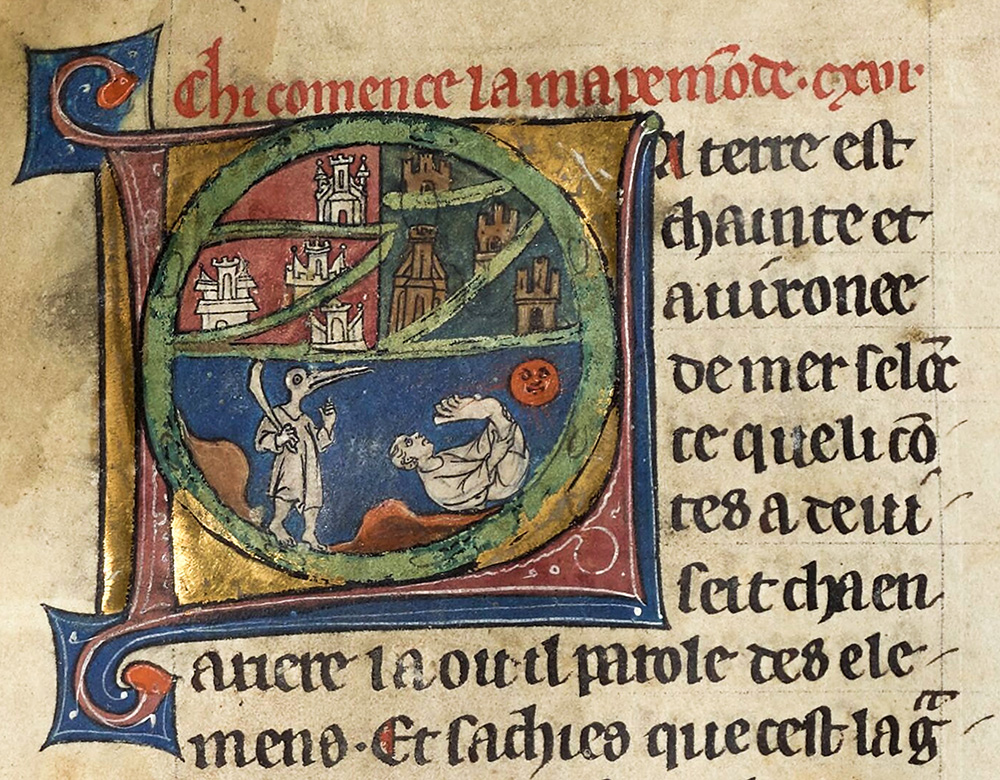 Chi comence la mapemōde·cxvi·
LA terre est
chainte et
auironee
de mer selōc
ce que li cō
tes a deui
seit cha en
ariere la ou il parole des ele
mens·Et sachies que cest la gᵃ